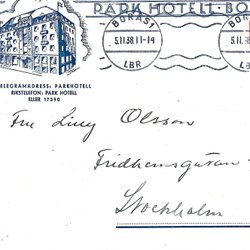 PARK HOTELL · BO
BORÅS 1
5.11.38.11-14
LBR
BORÅS
5.11.
LBR
TELEGRAMADRESS: PARKHOTELL
RIKSTELEFON: PARK HOTELL
ELLER 17390
Fru Lilly Olsson
Fridhemsgatan
Stockholm